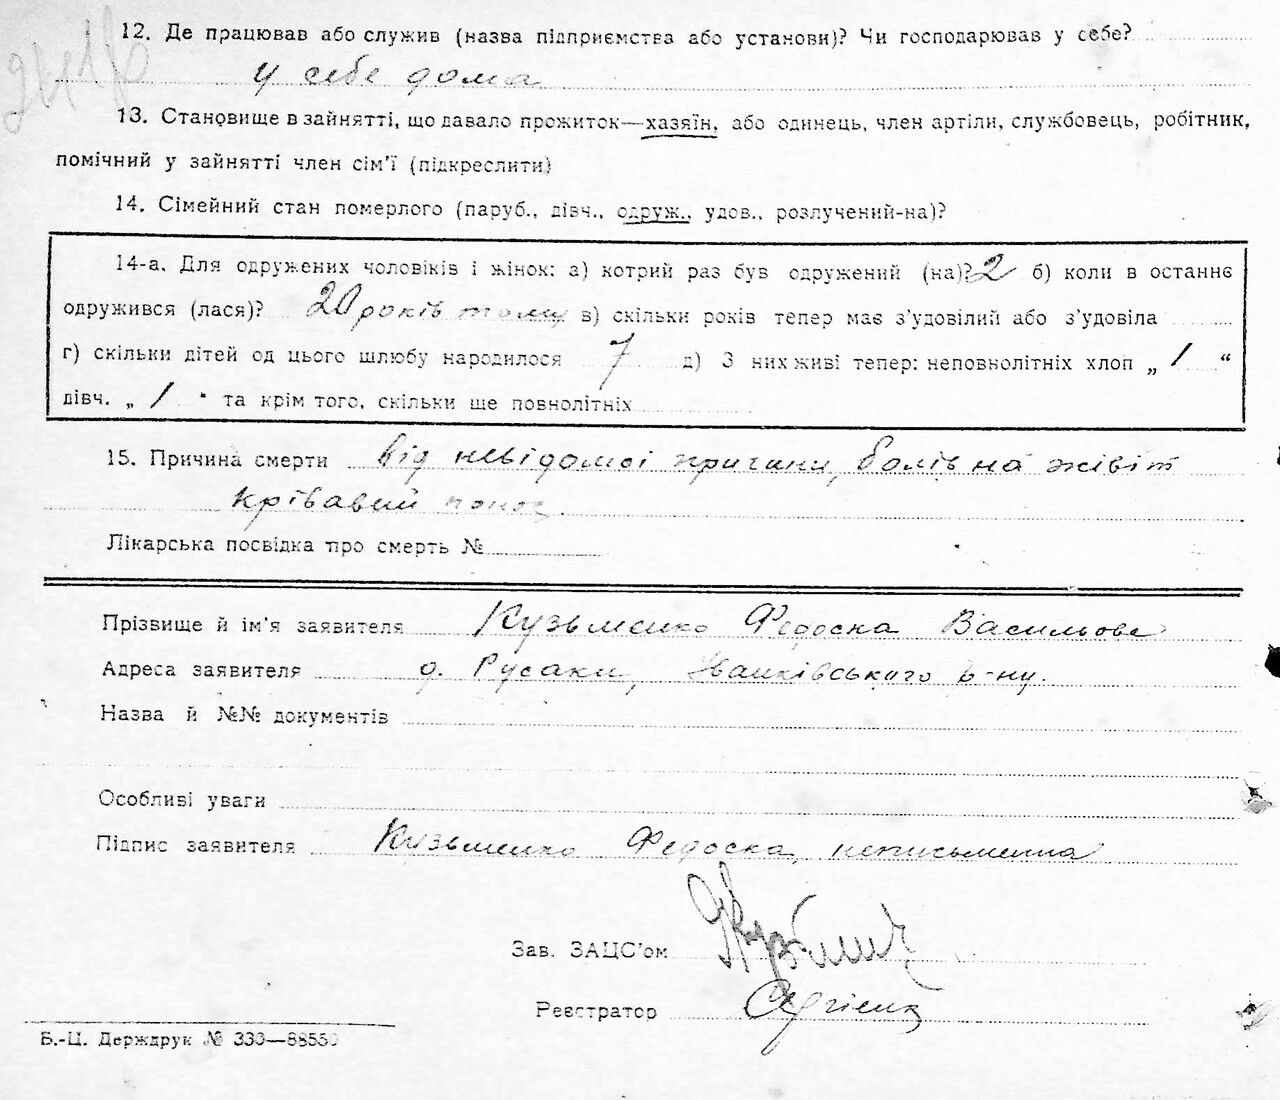 12. Де працював або служив (назва підприємства або установи)? Чи господарював у себе?
у себе дома
13. Становище в зайнятті, що давало прожиток—хазяїн, або одинець, член артіли, службовець, робітник,
помічний у зайнятті член сім'ї (підкреслити)
14. Сімейний стан померлого (паруб., дівч., одруж., удов., розлучений-на)?
14-а. Для одружених чоловіків і жінок: а) котрий раз був одружений (на)? 2 б) коли в останнє
одружився (лася)? 20 років тому в) скільки років тепер має з'удовілий або з'удовіла
г) скільки дітей од цього шлюбу народилося 7 д) З них живі тепер: неповнолітніх хлоп „ 1 “
дівч. „ 1 “ та крім того, скільки ще повнолітніх
15. Причина смерти від невідомої причини, болів на живіт
крівавий понос
Лікарська посвідка про смерть №
Прізвище й ім'я заявителя Кузьменко Федоска Васильове
Адреса заявителя д. Русаки, Іванківського р-ну.
Назва й №№ документів
Особливі уваги
Підпис заявителя Кузьменко Федоска, неписьменна
Зав. ЗАЦС'ом
Реєстратор
Б.-Ц. Держдрук № 333—88550